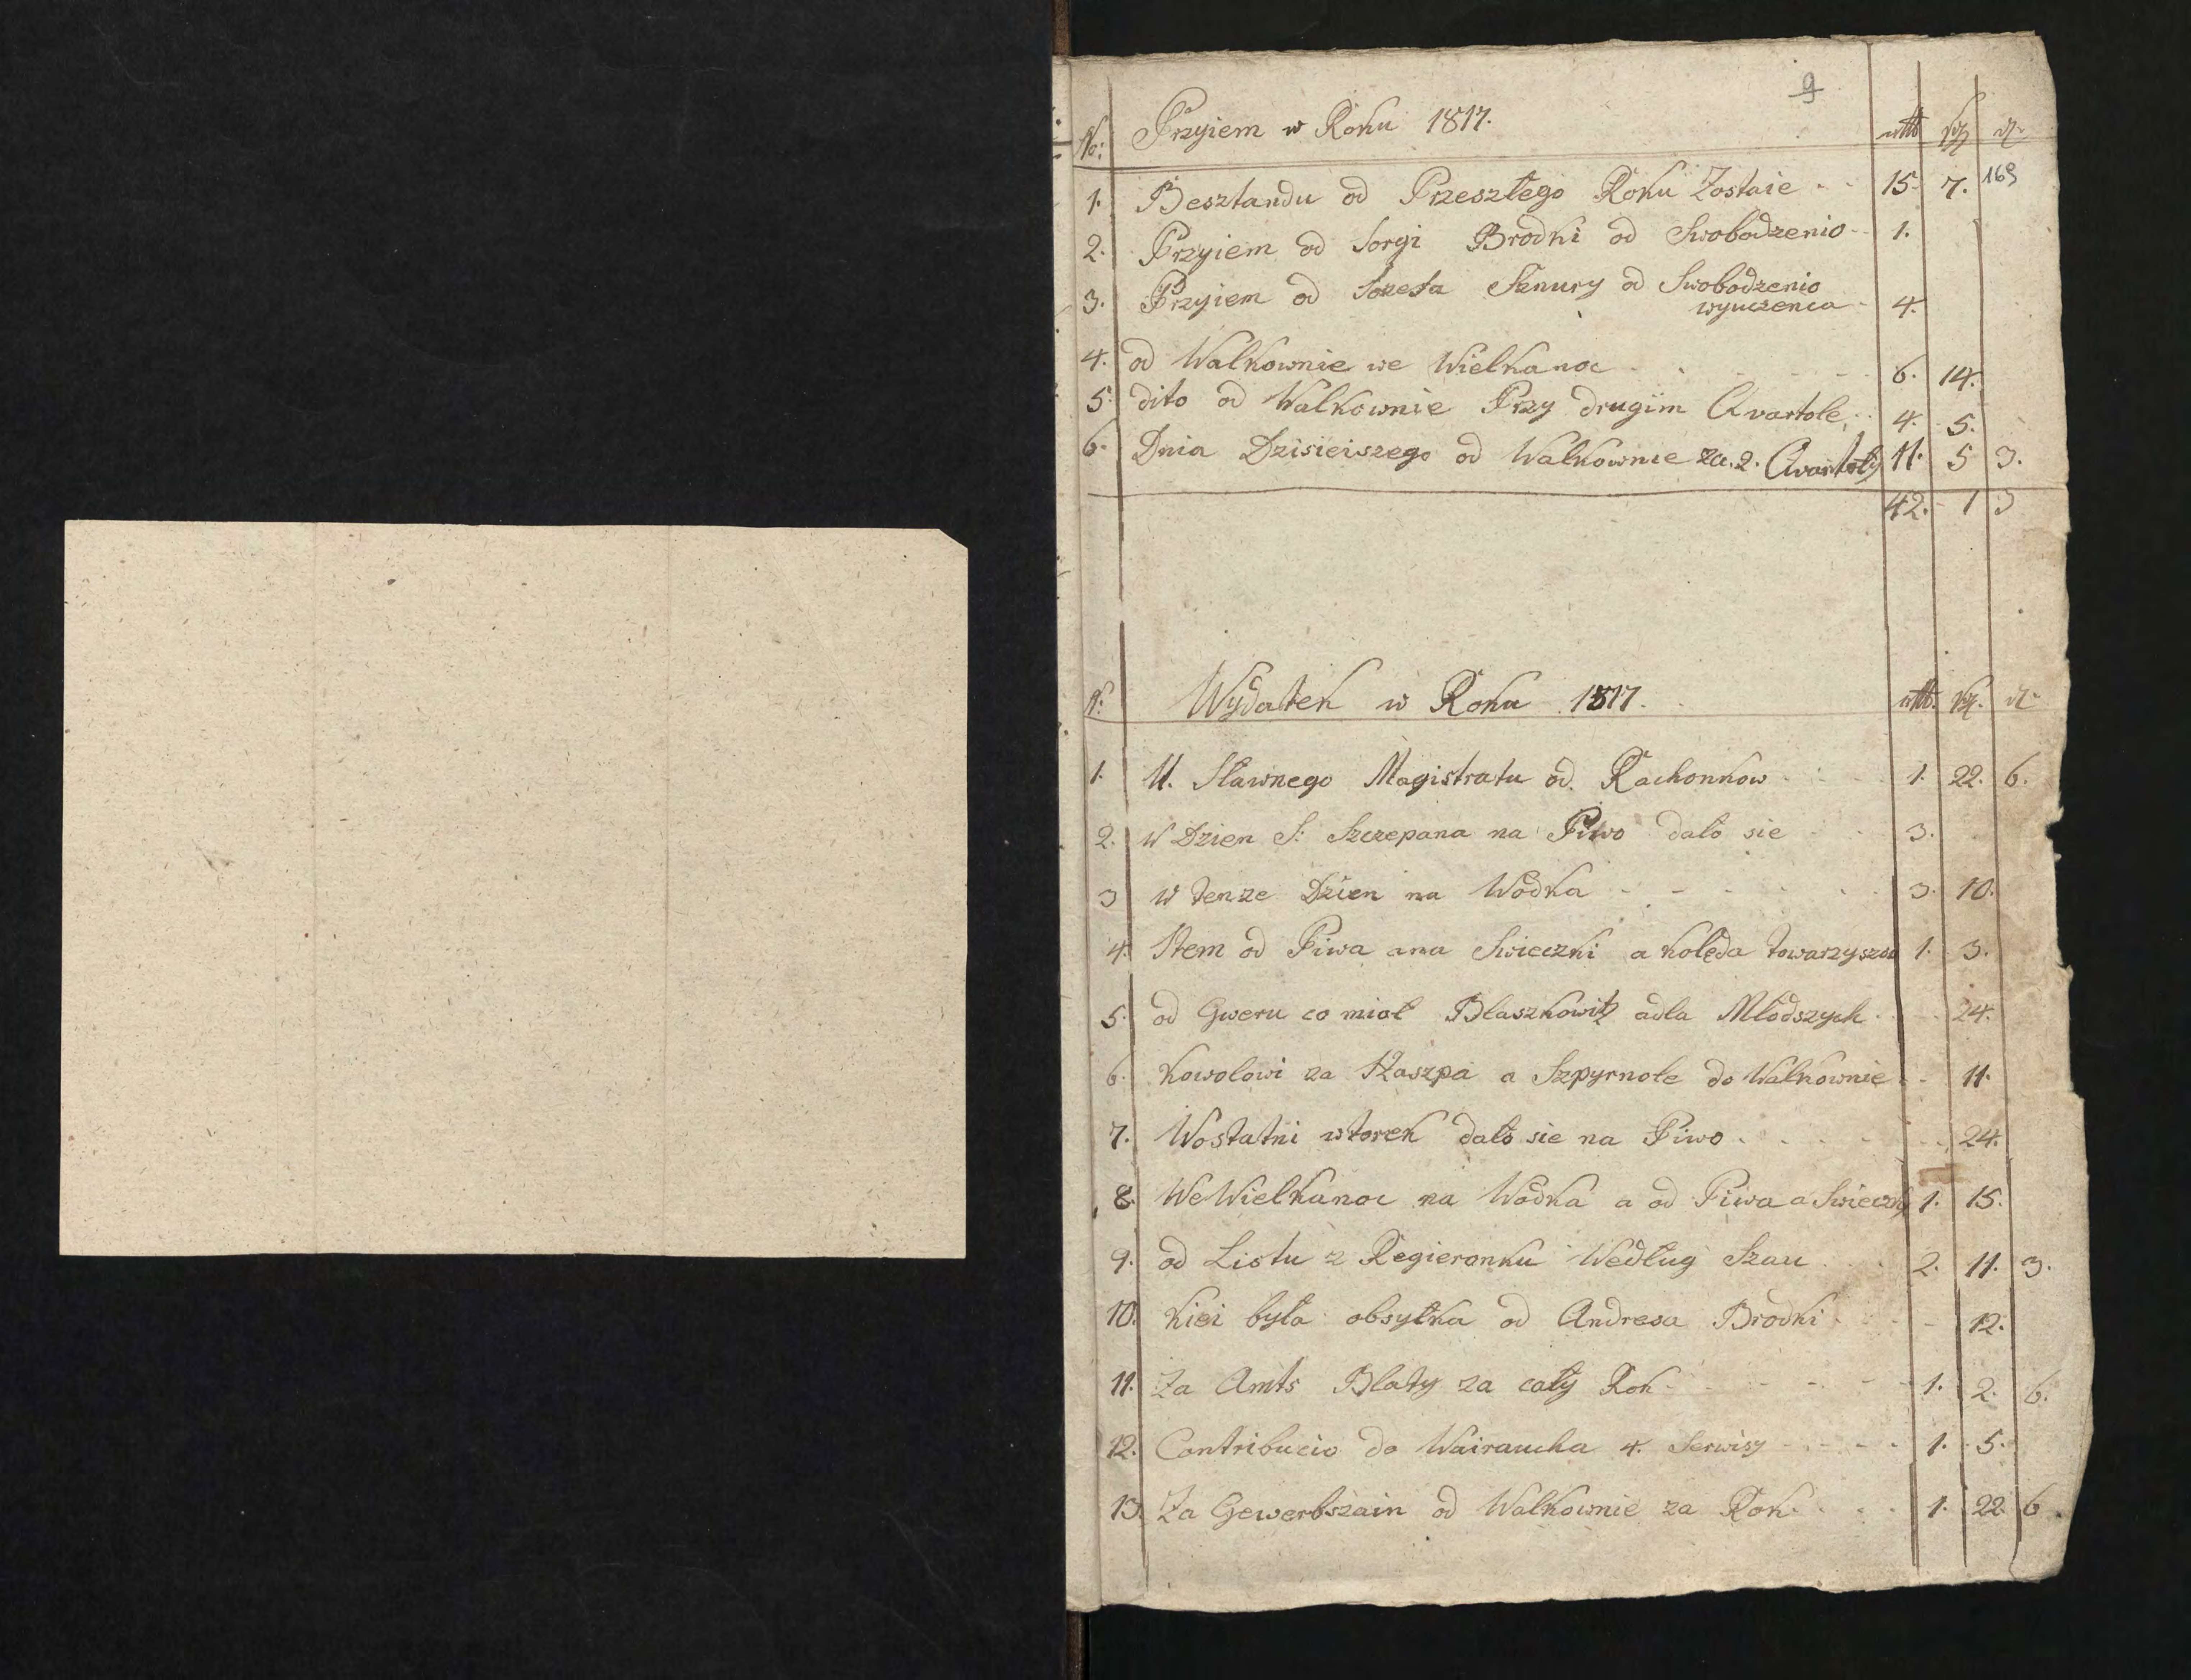 9
No: Przyiem w Roku 1817. rtlr sgr dr
169
1. Besztandu od Przeszłego Roku Zostaie - - 15. 7.
2. Przyiem od Jorgi Brodki od Swobodzenio - 1.
3. Przyiem od Jozefa Sznury od Swobodzenio
wyuczenca - 4.
4. od Walkownie we Wielkanoc - - - 6. 14.
5. dito od Walkownie Przy drugim Qvartole, 4. 5.
6. Dnia Dzisieiszego od Walkownie za. 2. Qvartoły 11. 5 3.
42. 1 3
N: Wydatek w Roku 1817. rtlr. sgr. dr
1. U. Sławnego Magistratu od Rachonkow 1. 22. 6.
2. W Dzien S: Szczepana na Piwo dało sie 3.
3 w tenze Dzien na Wodka - - - 3. 10.
4. Item od Piwa ana Swieczki a kolęda towarzyszom 1. 3.
5. od Gweru co mioł Blaszkowitz adla Młodszych 24.
6. Kowolowi za Haszpa a Szpyrnole do Walkownie - 11.
7. Wostatni wtorek dało sie na Piwo - - - 24.
8. We Wielkanoc na Wodka a od Piwa a Swieczky 1. 15.
9. od Listu z Regieronku Według Szau 2. 11. 3.
10. Kiei była obsyłka od Andresa Brodki - 12.
11. Za Amts Blaty za cały Rok - - - 1. 2. 6.
12. Contribucio do Wairaucha 4. Serwisy - - - 1. 5.
13. Za Gewerbszain od Walkownie za Rok - - 1. 22 6.